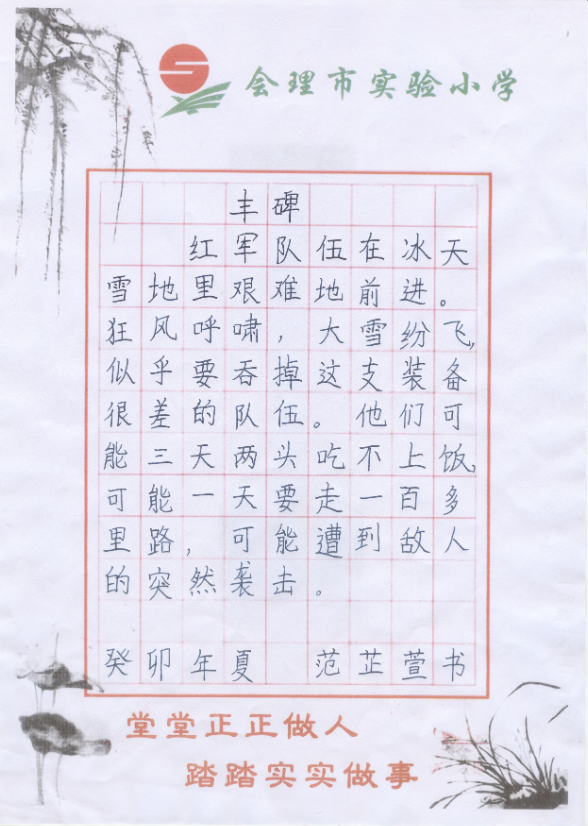 会理市实验小学
丰碑
红军队伍在冰天
雪地里艰难地前进。
狂风呼啸,大雪纷飞,
似乎要吞掉这支装备
很差的队伍。他们可
能三天两头吃不上饭,
可能一天要走一百多
里路,可能遭到敌人
的突然袭击。
癸卯年夏 范芷萱书
堂堂正正做人
踏踏实实做事